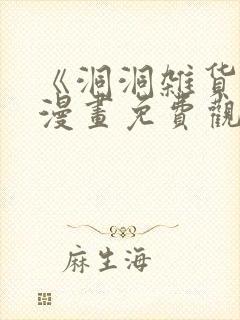 《洞洞雑货
漫畫免費觀
麻生海